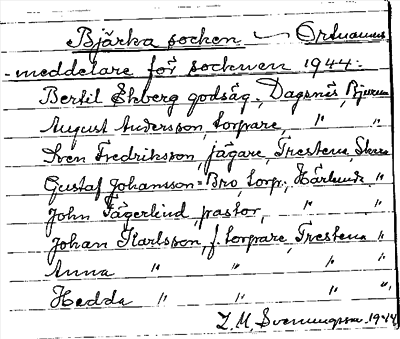 Bjärka socken — Ortnamns
-meddelare för socknen 1944:
Bertil Ekberg godsäg., Dagsnäs, Bjurum
August Andersson, torpare, " "
Sven Fredriksson, jägare, Trestena, Skara
Gustaf Johansson=Bro, torp., Härlunda, "
John Fägerlind, pastor, " "
Johan Karlsson, f. torpare, Trestena "
Anna " " " "
Hedda " " " "
Z. M. Svenungsson. 1944